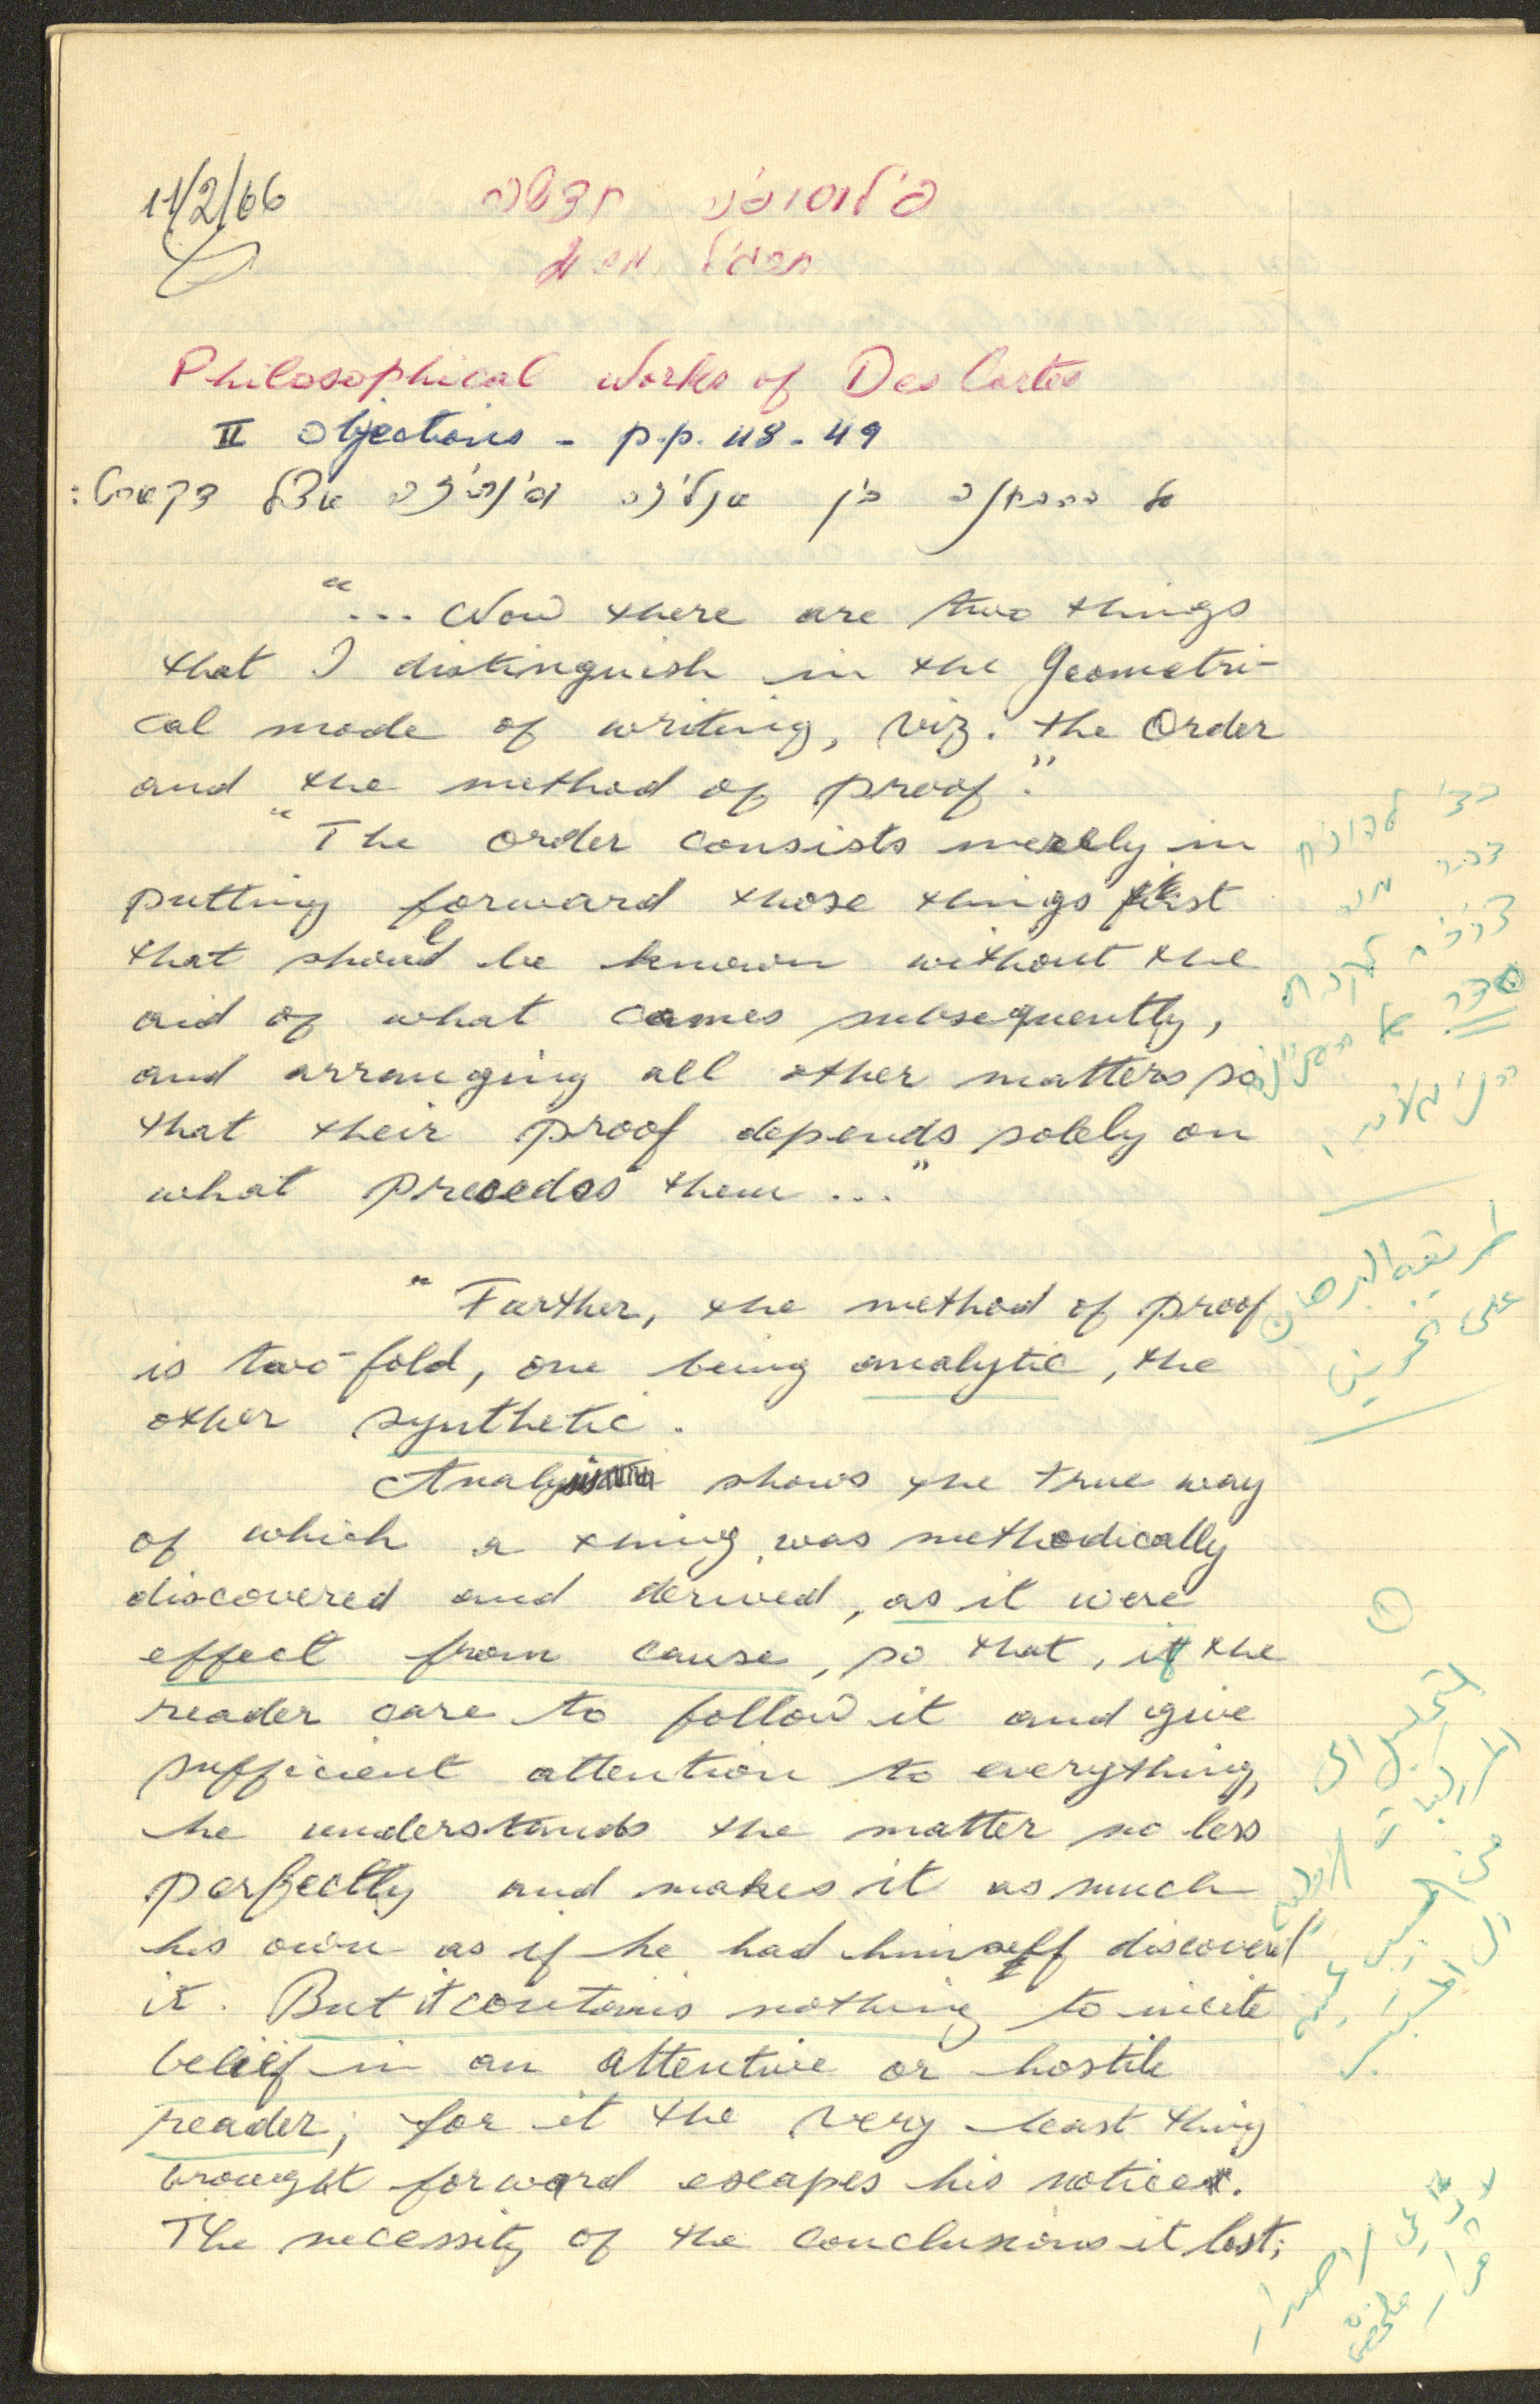 11/2/66
פילוסופיה חדשה
תרגיל
Philosophical Works of Des Cartes
II Objections - p.p. 48-49
על ההבחנה בין אנליזה וסינתיזה אצל דקארט:
"... Now there are two things
that I distinguish in the Geometri-
cal mode of writing, viz. the Order
and the method of proof."
"The order consists merely in
putting forward those things first
that should be known without the
aid of what comes subsequently,
and arranging all other matters so
that their proof depends solely on
what precedes them ..."
כדי להוכיח
דבר מה
צריך
סדר של
طريقة البرهان
على نحوين
"Further, the method of proof
is two-fold, one being analytic, the
other synthetic.
Analysis shows the true way
of which a thing was methodically
discovered and derived, as it were
effect from cause, so that, if the
reader care to follow it and give
sufficient attention to everything,
he understands the matter no less
perfectly and makes it as much
his own as if he had himself discovered
it. But it contains nothing to incite
belief in an attentive or hostile
reader; for it the very least thing
brought forward escapes his notice.
The necessity of the conclusions it lost;
①
التحليل
من
الى